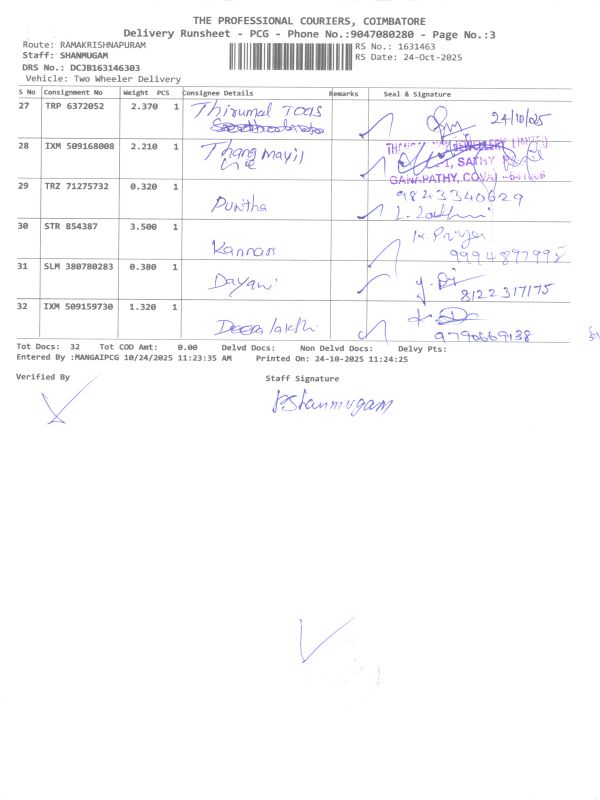 THE PROFESSIONAL COURIERS, COIMBATORE
Delivery Runsheet - PCG - Phone No.:9047080280 - Page No.:3
Route: RAMAKRISHNAPURAM
RS No.: 1631463
Staff: SHANMUGAM
RS Date: 24-Oct-2025
DRS No.: DCJB163146303
Vehicle: Two Wheeler Delivery
S No Consignment No Weight PCS Consignee Details Remarks Seal & Signature
27 TRP 6372052 2.370 1 Thirumal 24/10/025
28 IXM 509168008 2.210 1 Thangmayil
JEWELLERY LIMITED
SATHY
GANAPATHY, COVAI
29 TRZ 71275732 0.320 1 Punitha 9843340629
30 STR 854387 3.500 1 Kannan K. Priya
31 SLM 380780283 0.380 1 Dayani 8122317175
32 IXM 509159730 1.320 1 9790669138
Tot Docs: 32 Tot COD Amt: 0.00 Delvd Docs: Non Delvd Docs: Delvy Pts:
Entered By :MANGAIPCG 10/24/2025 11:23:35 AM Printed On: 24-10-2025 11:24:25
Verified By Staff Signature
P.Shanmugam